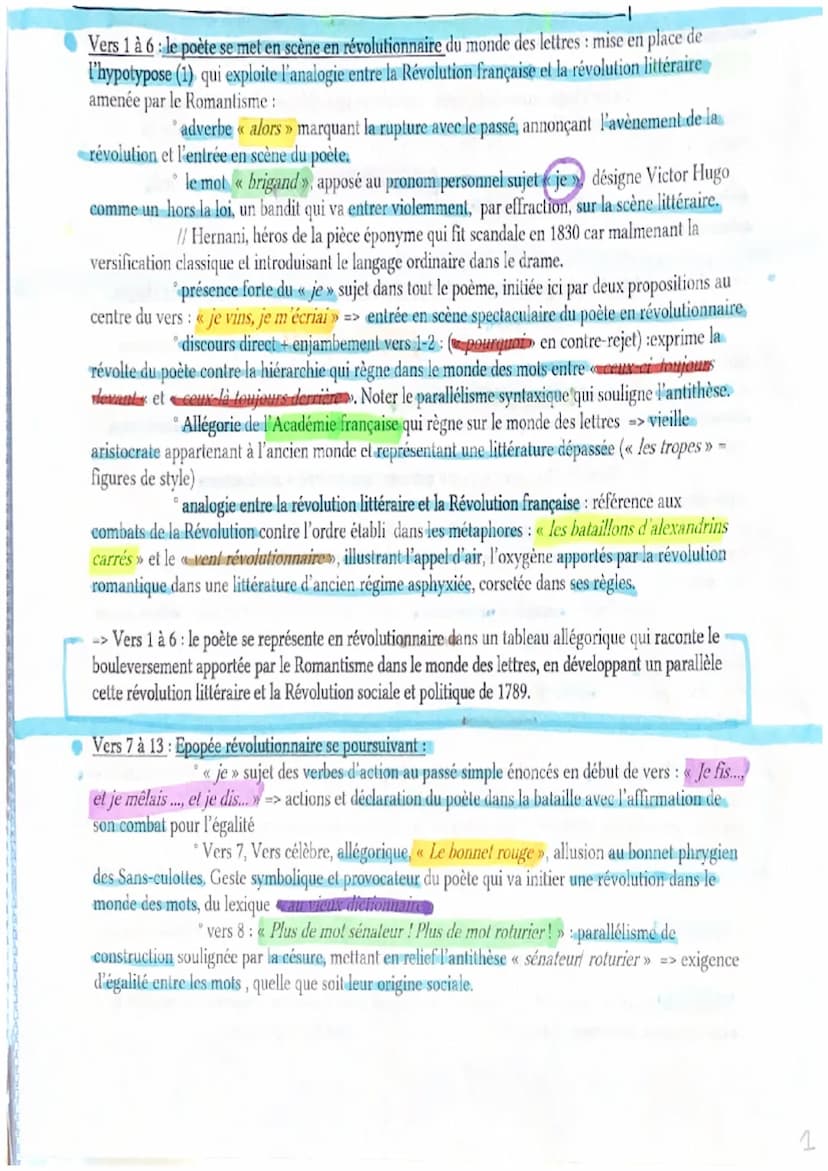 Vers 1 à 6 : le poète se met en scène en révolutionnaire du monde des lettres : mise en place de
l'hypotypose (1) qui exploite l'analogie entre la Révolution française et la révolution littéraire
amenée par le Romantisme :
° adverbe « alors » marquant la rupture avec le passé, annonçant l'avènement de la
révolution et l'entrée en scène du poète.
° le mot « brigand », apposé au pronom personnel sujet « je », désigne Victor Hugo
comme un hors la loi, un bandit qui va entrer violemment, par effraction, sur la scène littéraire.
// Hernani, héros de la pièce éponyme qui fit scandale en 1830 car malmenant la
versification classique et introduisant le langage ordinaire dans le drame.
° présence forte du « je » sujet dans tout le poème, initiée ici par deux propositions au
centre du vers : « je vins, je m'écriai » => entrée en scène spectaculaire du poète en révolutionnaire
° discours direct + enjambement vers 1-2 : (« pourquoi » en contre-rejet) :exprime la
révolte du poète contre la hiérarchie qui règne dans le monde des mots entre « ceux-ci toujours
devant « et « ceux-là toujours derrière ». Noter le parallélisme syntaxique qui souligne l'antithèse.
° Allégorie de l'Académie française qui règne sur le monde des lettres => vieille
aristocrate appartenant à l'ancien monde et représentant une littérature dépassée (« les tropes » =
figures de style)
° analogie entre la révolution littéraire et la Révolution française : référence aux
combats de la Révolution contre l'ordre établi dans les métaphores : « les bataillons d'alexandrins
carrés » et le « vent révolutionnaire », illustrant l'appel d'air, l'oxygène apportés par la révolution
romantique dans une littérature d'ancien régime asphyxiée, corsetée dans ses règles.
=> Vers 1 à 6 : le poète se représente en révolutionnaire dans un tableau allégorique qui raconte le
bouleversement apportée par le Romantisme dans le monde des lettres, en développant un parallèle
cette révolution littéraire et la Révolution sociale et politique de 1789.
Vers 7 à 13 : Epopée révolutionnaire se poursuivant :
° « je » sujet des verbes d'action au passé simple énoncés en début de vers : « Je fis...,
et je mêlais ..., et je dis... » => actions et déclaration du poète dans la bataille avec l'affirmation de
son combat pour l'égalité
° Vers 7, Vers célèbre, allégorique, « Le bonnet rouge », allusion au bonnet phrygien
des Sans-culottes. Geste symbolique et provocateur du poète qui va initier une révolution dans le
monde des mots, du lexique « au vieux dictionnaire »
° vers 8 : « Plus de mot sénateur ! Plus de mot roturier ! » : parallélisme de
construction soulignée par la césure, mettant en relief l'antithèse « sénateur/ roturier » => exigence
d'égalité entre les mots , quelle que soit leur origine sociale.
1